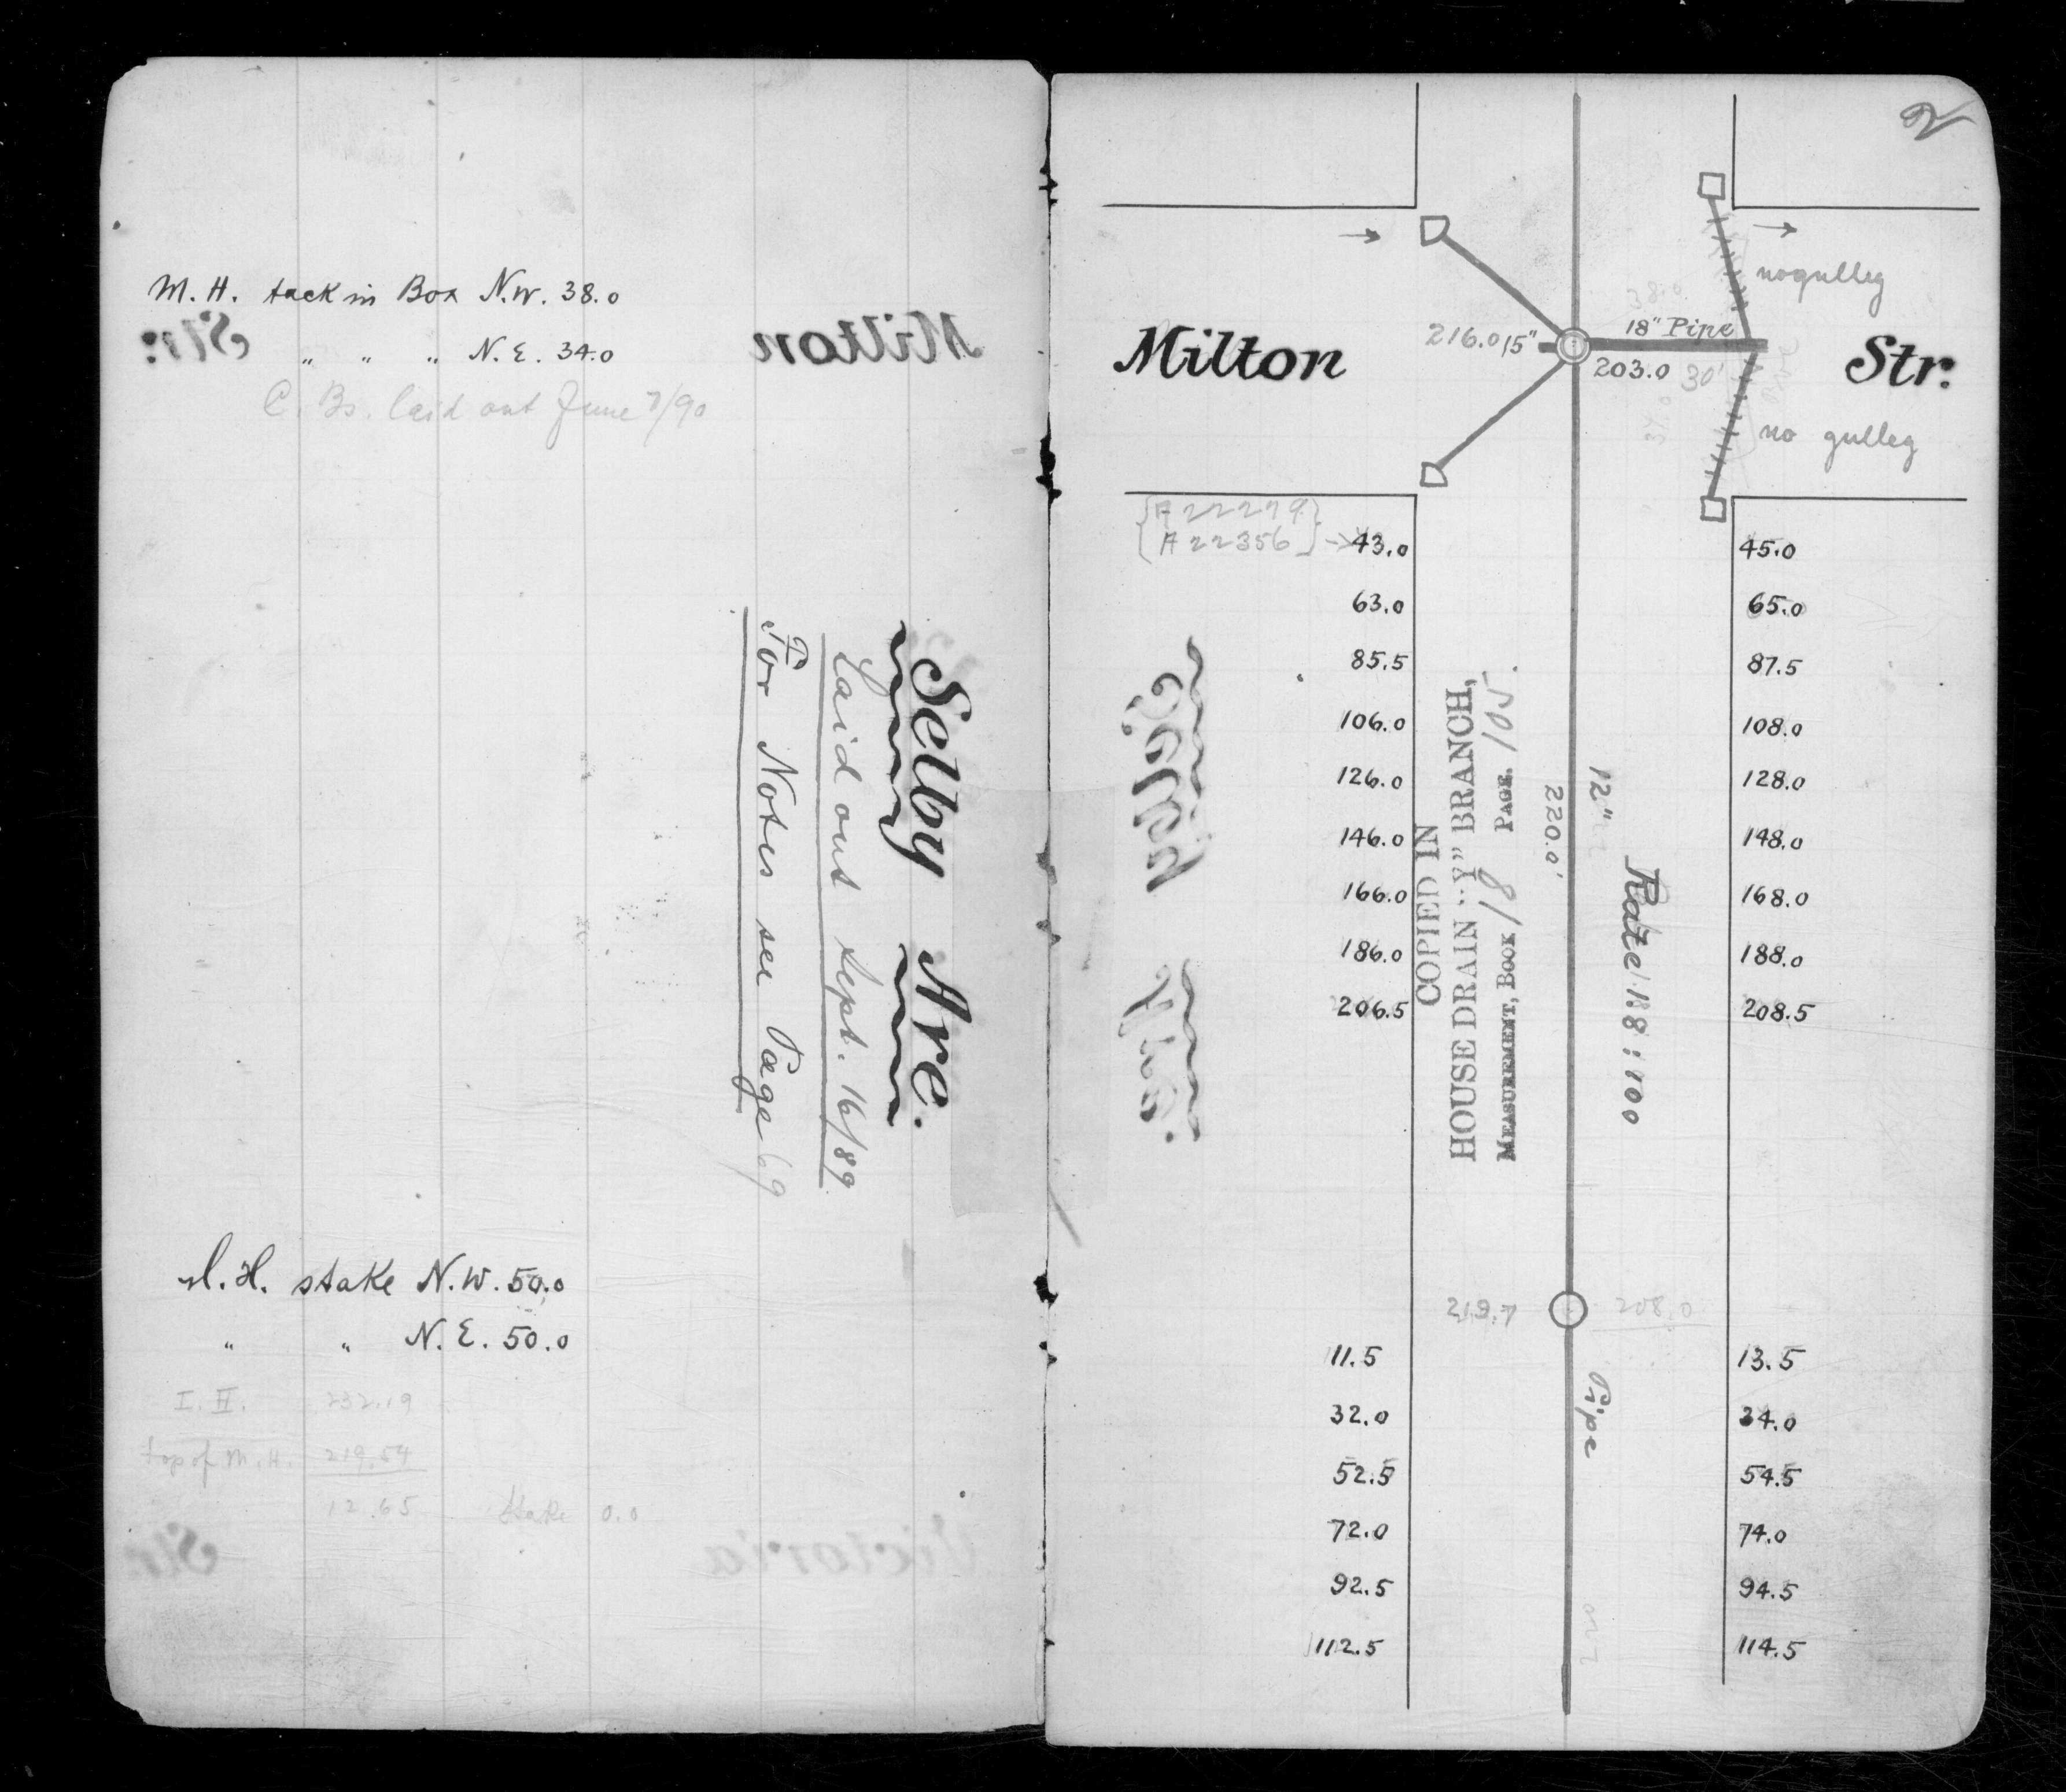 M. H. tack in Box N.W. 38.0
" " " N.E. 34.0
C. Bs. laid out June 7/90
Selby Ave.
Laid out Sept. 16/89
For Notes see Page 69
M. H. stake N.W. 50.0
" " N.E. 50.0
I. II. 232.19
top of M.H. 219.54
12.65 Stake 0.0
2
→ →
no gulleg
38.0
18" Pipe
Milton 216.0 15" Str.
203.0 30'
34.0
no gulleg
{A 22279}
{A 22356} → 43.0 45.0
63.0 65.0
85.5 87.5
106.0 108.0
126.0 128.0
146.0 148.0
166.0 168.0
186.0 188.0
206.5 208.5
COPIED IN
HOUSE DRAIN "Y" BRANCH,
MEASUREMENT, BOOK 18 PAGE. 105.
220.0'
12"
Rate 1.18 : 100
219.7 208.0
Pipe
11.5 13.5
32.0 34.0
52.5 54.5
72.0 74.0
92.5 94.5
112.5 114.5